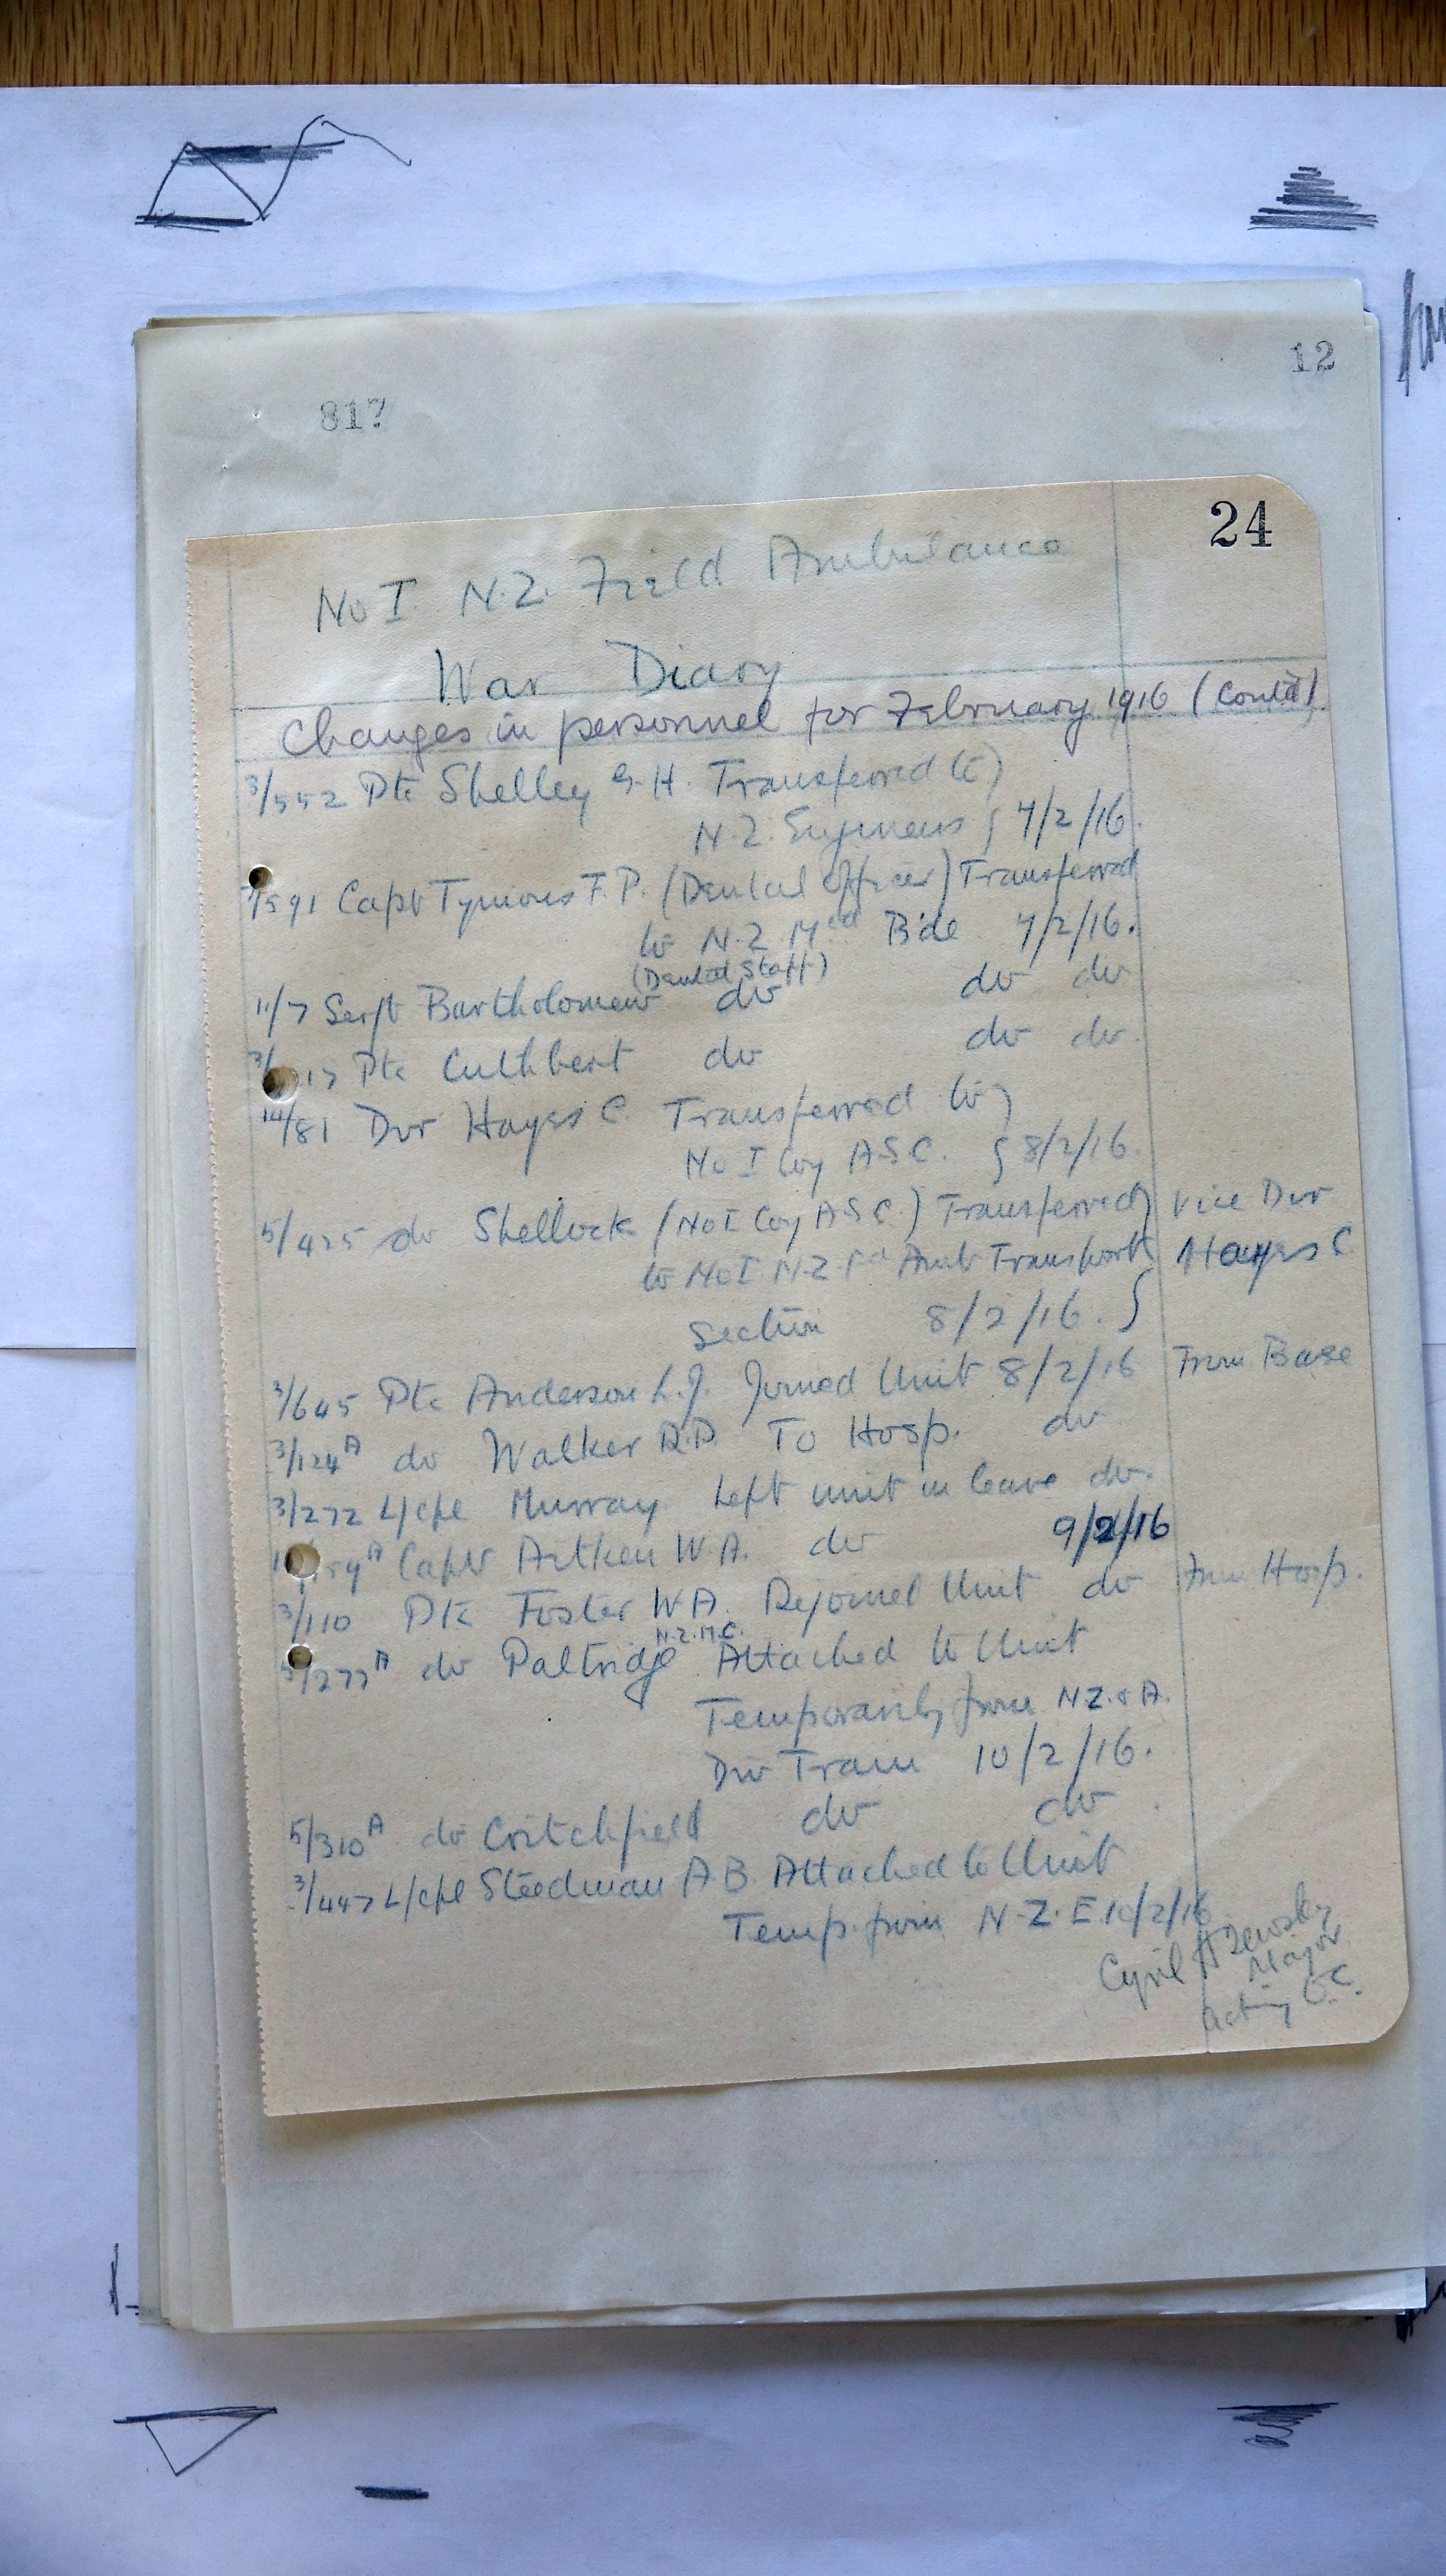 12
817
24
No I N.Z. Field Ambulance
War Diary
Changes in personnel for February 1916 (Contd)
3/552 Pte Shelley G.H. Transferred to }
N.Z. Engineers } 7/2/16.
/591 Capt Tymons F.P. (Dental Officer) Transferred
to N.Z. Med Bde 7/2/16.
(Dental Staff)
11/7 Sergt Bartholomew do do do
3/ 17 Pte Cuthbert do do do.
14/81 Dvr Hayes C. Transferred to }
No I Coy A.S.C. } 8/2/16.
5/425 do Shellock (No I Coy A.S.C.) Transferred } Vice Dvr
to No I N.Z. Fd Amb Transport } Hayes C
Section 8/2/16. }
3/645 Pte Anderson L.J. Joined Unit 8/2/16 From Base
3/124A do Walker R.D. To Hosp. do
3/272 L/cpl Murray Left unit on leave do.
/159A Capt Aitken W.A. do 9/2/16
3/110 Pte Foster W.A. Rejoined Unit do from Hosp.
N.Z.M.C.
5/277A do Paltridge Attached to Unit
Temporarily from N.Z.&A.
Div Train 10/2/16.
5/310A do Critchfield do do.
3/447 L/cpl Steedman A.B. Attached to Unit
Temp. from N.Z.E. 10/2/16
Cyril H
Major
Acting O.C.